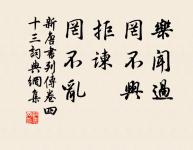 樂聞過
罔不興
拒諫
罔不亂
新唐書列傳卷四
十三詞典網集